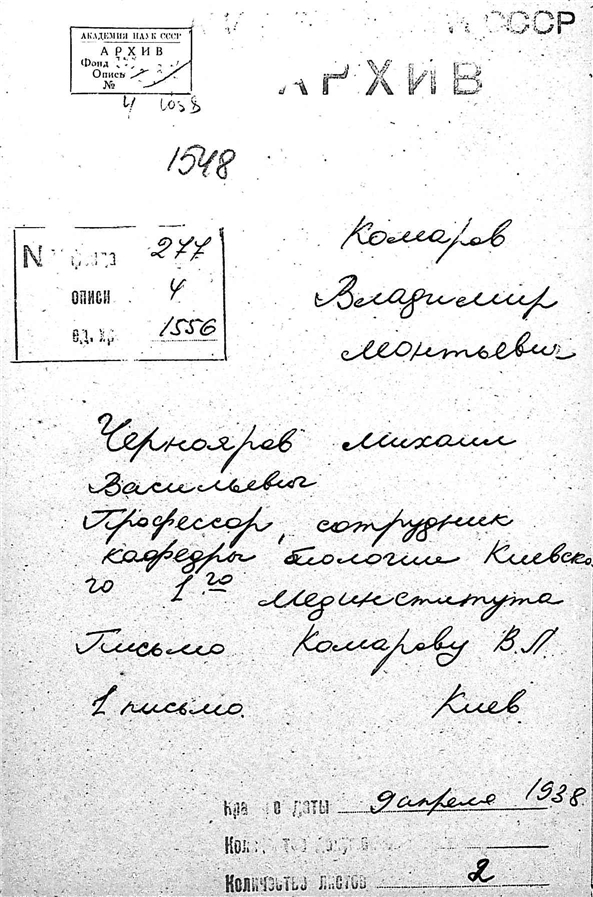 СССР
АРХИВ
АКАДЕМИЯ НАУК СССР
АРХИВ
Фонд
Опись
№
4 1058
1548
N фонда 277
описи 4
ед. хр. 1556
Комаров
Владимир
Леонтьевич
Чернояров Михаил
Васильевич
Профессор, сотрудник
кафедры биологии Киевско
го 1го Мединститута
Письмо Комарову В.Л.
1 письмо. Киев
Крайние даты 9 апреля 1938
Количество
Количество листов 2